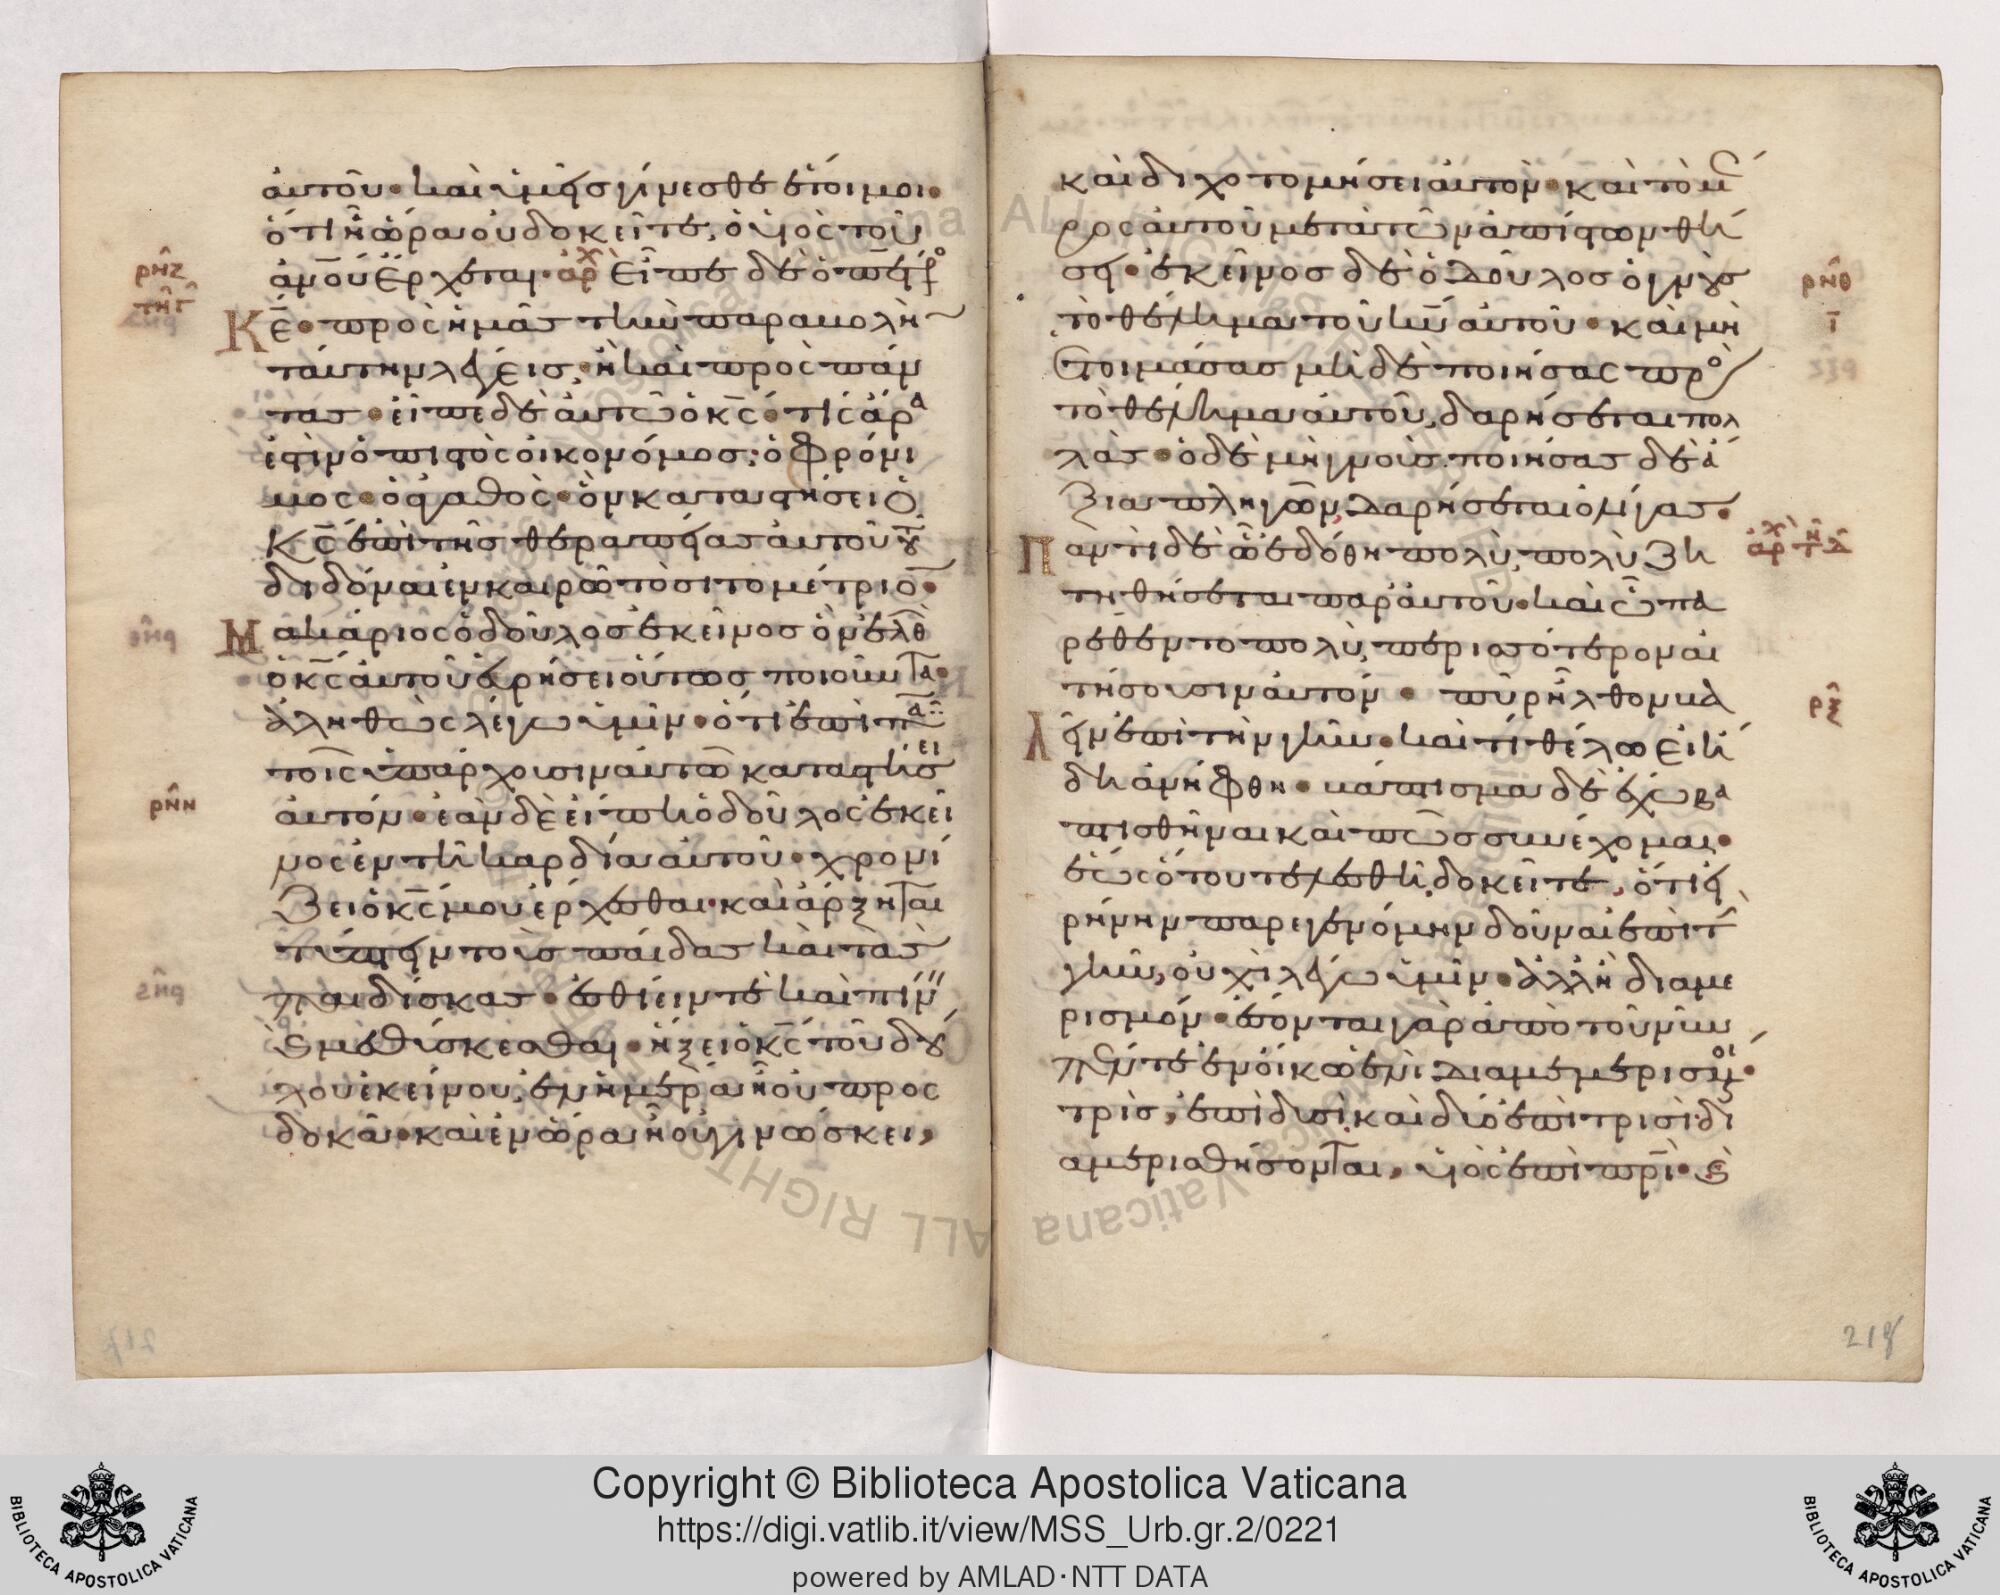 αὐτοῦ· καὶ ὑμεῖς γίνεσθε ἕτοιμοι·
ὅτι ἧ ὥρα οὐ δοκεῖτε, ὁ υἱὸς τοῦ
ἀν̅ου ἔρχεται· ἀρχ εἶπε δὲ ὁ πέτρο
ρνζ
τηγ
κ̅ε· πρὸς ἡμᾶς τὴν παραβολὴ
ταύτην λέγεις, ἢ καὶ πρὸς πάν
τας· εἶπε δὲ αὐτῶ ὁ κ̅ς· τίς ἄρα
ἐστὶν ὁ πιστὸς οἰκονόμος; ὁ φρόνι
μος· ὁ ἀγαθὸς· ὃν καταστήσει ὁ
κ̅ς ἐπὶ τῆς θεραπείας αὐτοῦ τοῦ
διδόναι ἐν καιρῶ τὸ σιτομέτριον·
Μακάριος ὁ δοῦλος ἐκεῖνος ὃν ἐλθὼ
ὁ κ̅ς αὐτοῦ εὑρήσει οὕτως ποιοῦντα·
ἀληθῶς λέγω ὑμῖν· ὅτι ἐπὶ πᾶ
τοῖς ὑπάρχουσιν αὐτῶ καταστήσει
αὐτόν· ἐὰν δὲ εἴπη ὁ δοῦλος ἐκεῖ
ρνη
νος ἐν τῆ καρδία αὐτοῦ· χρονί
ζει ὁ κ̅ς μου ἔρχεσθαι· καὶ ἄρξηται
τύπτειν τοὺς παῖδας καὶ τὰς
παιδίσκας· ἐσθίειν τὲ καὶ πίνειν
καὶ μεθύσκεσθαι· ἥξει ὁ κ̅ς τοῦ δού
λου ἐκείνου, ἐν ἡμέρα ἧ οὐ προσ
δοκᾶ· καὶ ἐν ὥρα ἧ οὐ γινώσκει,
καὶ διχοτομήσει αὐτὸν· καὶ τὸ μέ
ρος αὐτοῦ μετὰ τῶν ἀπίστων θή
σει· ἐκεῖνος δὲ ὁ δοῦλος ὁ γνοὺς
ρνθ
ι
τὸ θέλημα τοῦ κ̅υ αὐτοῦ· καὶ μὴ
ἑτοιμάσας μηδὲ ποιήσας πρὸς
τὸ θέλημα αὐτοῦ, δαρήσεται πολ
λὰς· ὁ δὲ μὴ γνοὺς· ποιήσας δὲ ἄ
ξια πληγῶν, δαρήσεται ὀλίγας·
Παντὶ δὲ ὧ ἐδόθη πολὺ, πολὺ ζη
ἀρχ τηδ
τηθήσεται παρ' αὐτοῦ· καὶ ὧ πα
ρέθεντο πολὺ, περισσότερον αἰ
τήσουσιν αὐτόν· πῦρ ἦλθον βα
ρξ
λεῖν ἐπὶ τὴν γῆν· καὶ τί θέλω εἰ ἤ
δη ἀνήφθη· βάπτισμα δὲ ἔχω βα
πτισθῆναι καὶ πῶς συνέχομαι·
ἕως ὅτου τελεσθῆ, δοκεῖτε, ὅτι εἰ
ρήνην παρεγενόμην δοῦναι ἐπὶ τὴ
γῆν, οὐχὶ λέγω ὑμῖν· ἀλλ' ἢ διαμε
ρισμόν· ἔσονται γὰρ ἀπὸ τοῦ νῦν
πέντε ἐν οἴκω ἑνὶ διαμεμερισμένοι·
τρὶς, ἐπὶ δυσὶ καὶ δύο ἐπὶ τρισὶ· δι
αμερισθήσονται, υἱὸς ἐπὶ π̅ρὶ· καὶ
218
Copyright © Biblioteca Apostolica Vaticana
https://digi.vatlib.it/view/MSS_Urb.gr.2/0221
powered by AMLAD·NTT DATA
BIBLIOTECA APOSTOLICA VATICANA
BIBLIOTECA APOSTOLICA VATICANA